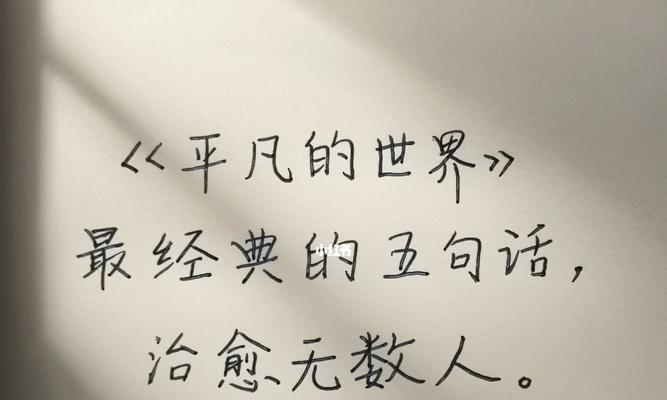 《平凡的世界》
最经典的五句话,
小红书
治愈无数人。